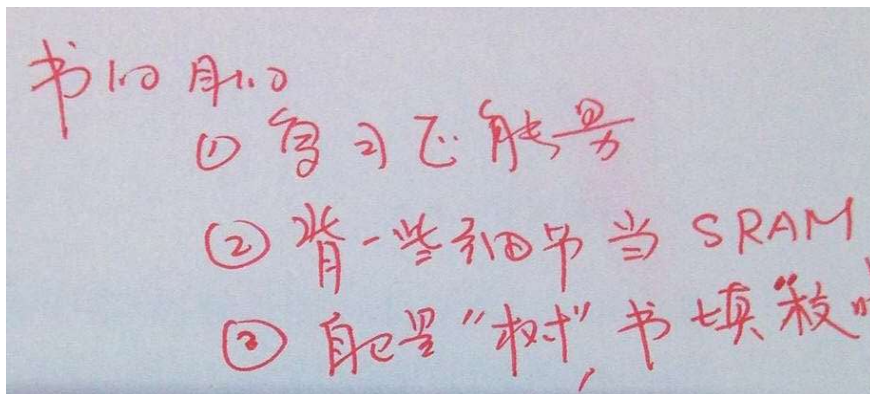 书1.0 自1.0
① 复习正能量
② 背一些细节当 SRAM
③ 自己是“树”,书填“枝